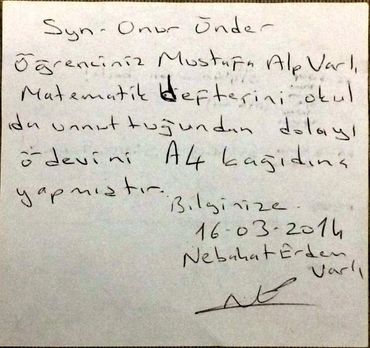 Syn- Onur Önder
Öğrenciniz Mustafa Alp Varlı
Matematik defterini okul
da unuttuğundan dolayı
ödevini A4 kağıdına
yapmıştır.
Bilginize.
16-03-2014
Nebahat Erden
Varlı